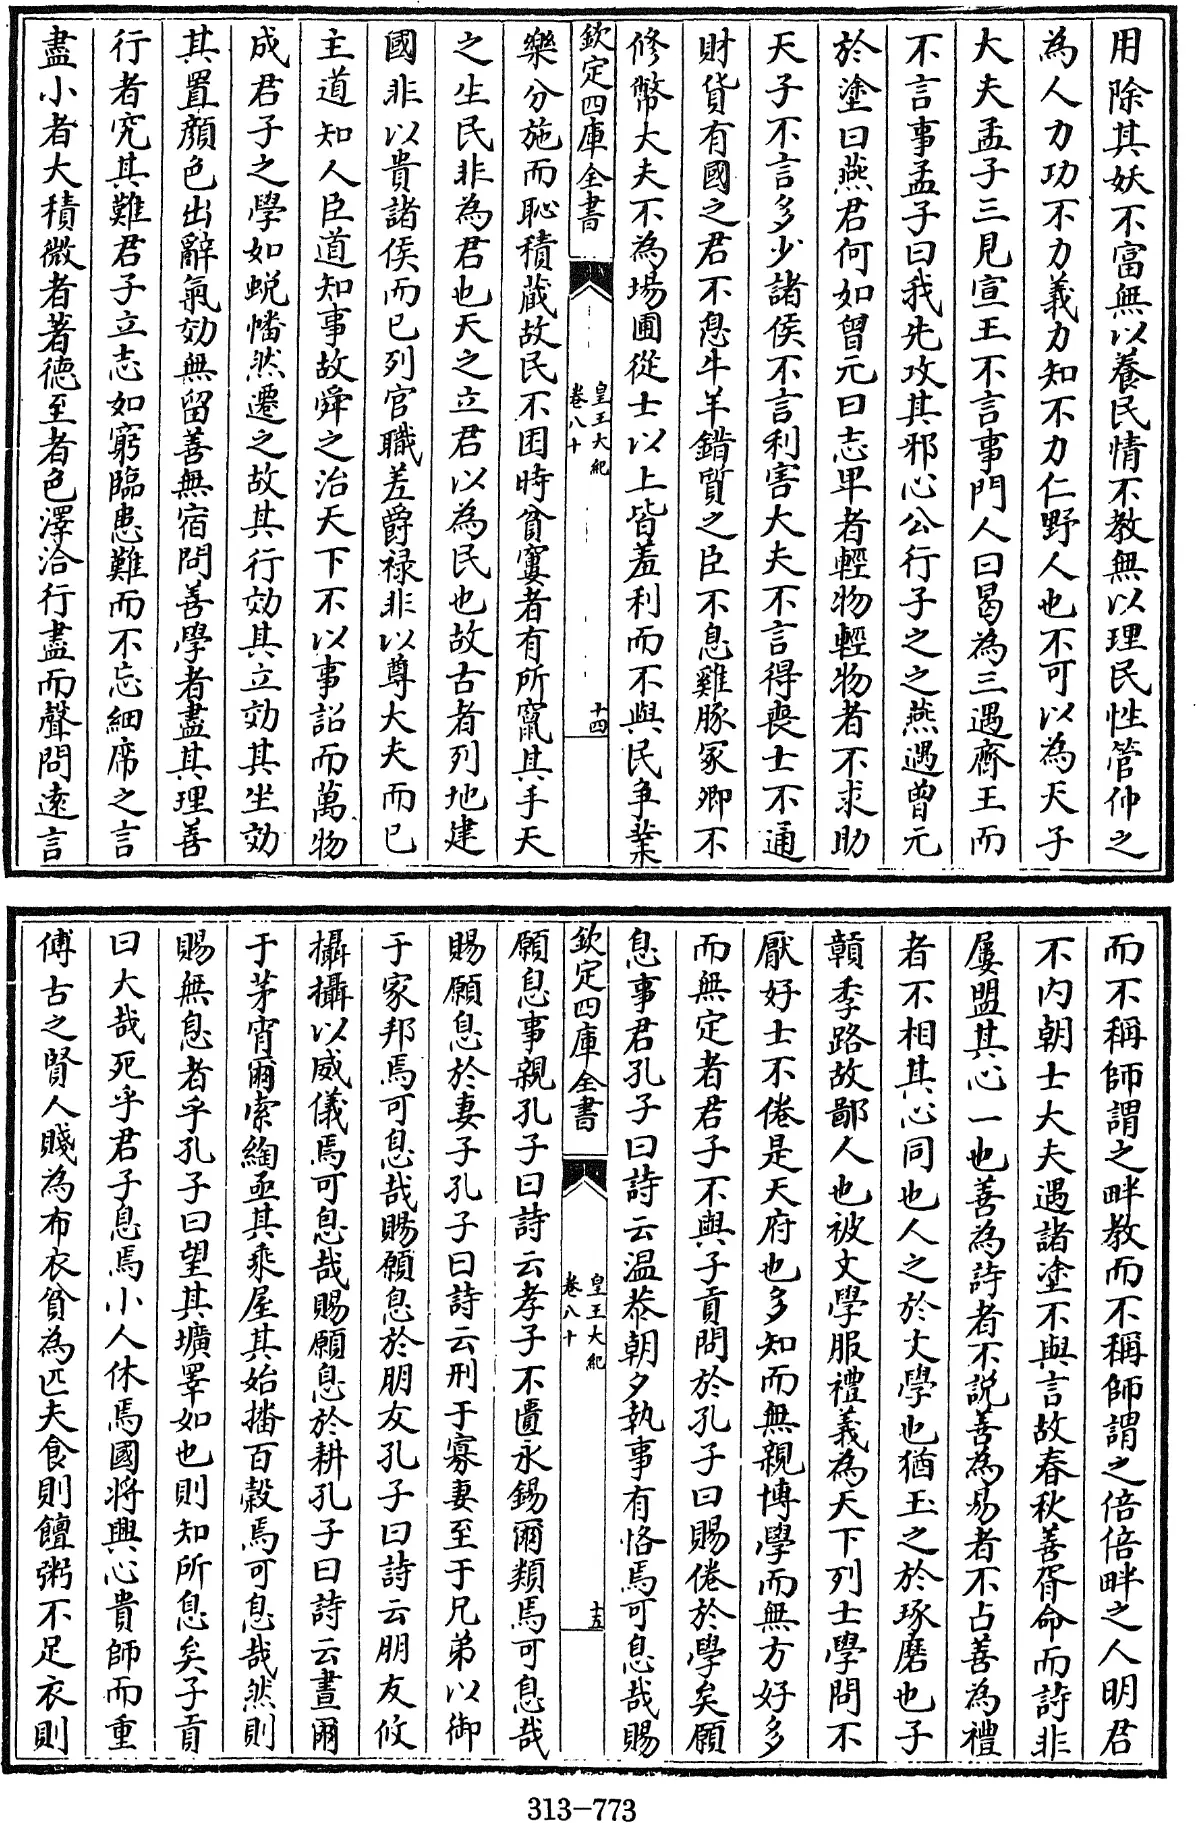 用除其妖不富無以養民情不教無以理民性管仲之
為人力功不力義力知不力仁野人也不可以為天子
大夫孟子三見宣王不言事門人曰曷為三遇齊王而
不言事孟子曰我先攻其邪心公行子之之燕遇曾元
於塗曰燕君何如曾元曰志卑者輕物輕物者不求助
天子不言多少諸侯不言利害大夫不言得喪士不通
財貨有國之君不息牛羊錯質之臣不息雞豚冢卿不
修幣大夫不為場圃從士以上皆羞利而不與民争業
欽定四庫全書
皇王大紀
卷八十
十四
樂分施而恥積蔵故民不困時貧窶者有所竄其手天
之生民非為君也天之立君以為民也故古者列地建
國非以貴諸侯而已列官職差爵禄非以尊大夫而已
主道知人臣道知事故舜之治天下不以事詔而萬物
成君子之學如蜕幡然遷之故其行効其立効其坐効
其置顔色出辭氣効無留善無宿問善學者盡其理善
行者究其難君子立志如窮臨患難而不忘細席之言
盡小者大積微者著德至者色澤洽行盡而聲問遠言
而不稱師謂之畔教而不稱師謂之倍倍畔之人明君
不内朝士大夫遇諸塗不與言故春秋善胥命而詩非
屢盟其心一也善為詩者不説善為易者不占善為禮
者不相其心同也人之於文學也猶玉之於琢磨也子
贑季路故鄙人也被文學服禮義為天下列士學問不
厭好士不倦是天府也多知而無親博學而無方好多
而無定者君子不與子貢問於孔子曰賜倦於學矣願
息事君孔子曰詩云温恭朝夕執事有恪焉可息哉賜
欽定四庫全書
皇王大紀
卷八十
十五
願息事親孔子曰詩云孝子不匱永錫爾類焉可息哉
賜願息於妻子孔子曰詩云刑于寡妻至于兄弟以御
于家邦焉可息哉賜願息於朋友孔子曰詩云朋友攸
攝攝以威儀焉可息哉賜願息於耕孔子曰詩云晝爾
于茅宵爾索綯亟其乘屋其始播百穀焉可息哉然則
賜無息者乎孔子曰望其壙睪如也則知所息矣子貢
曰大哉死乎君子息焉小人休焉國将興心貴師而重
傅古之賢人賤為布衣貧為匹夫食則饘粥不足衣則
313-773